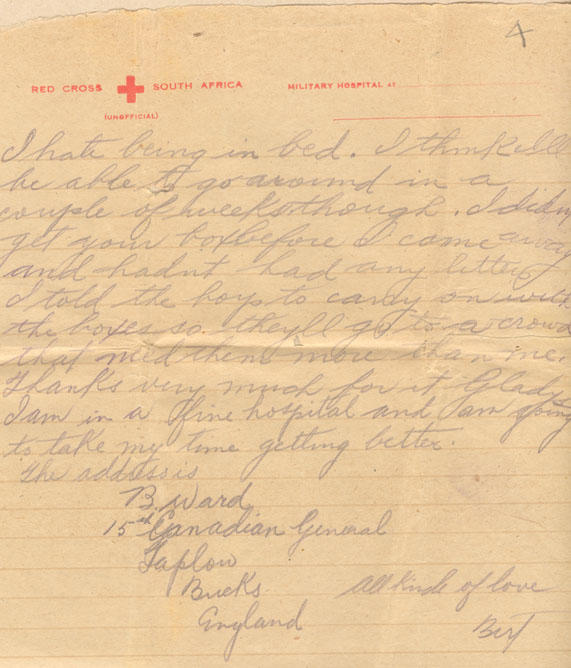 4
RED CROSS SOUTH AFRICA MILITARY HOSPITAL AT
(UNOFFICIAL)
I hate being in bed. I think I'll
be able to go around in a
couple of weeks though. I didn't
get your box before I came away
and hadn't had any letters
I told the boys to carry on with
the boxes so they'll go to a crowd
that need them more than me.
Thanks very much for it Glad
I am in a fine hospital and am going
to take my time getting better.
The address is
B. Ward
15th Canadian General
Taplow
Bucks. All kinds of love
England Bert